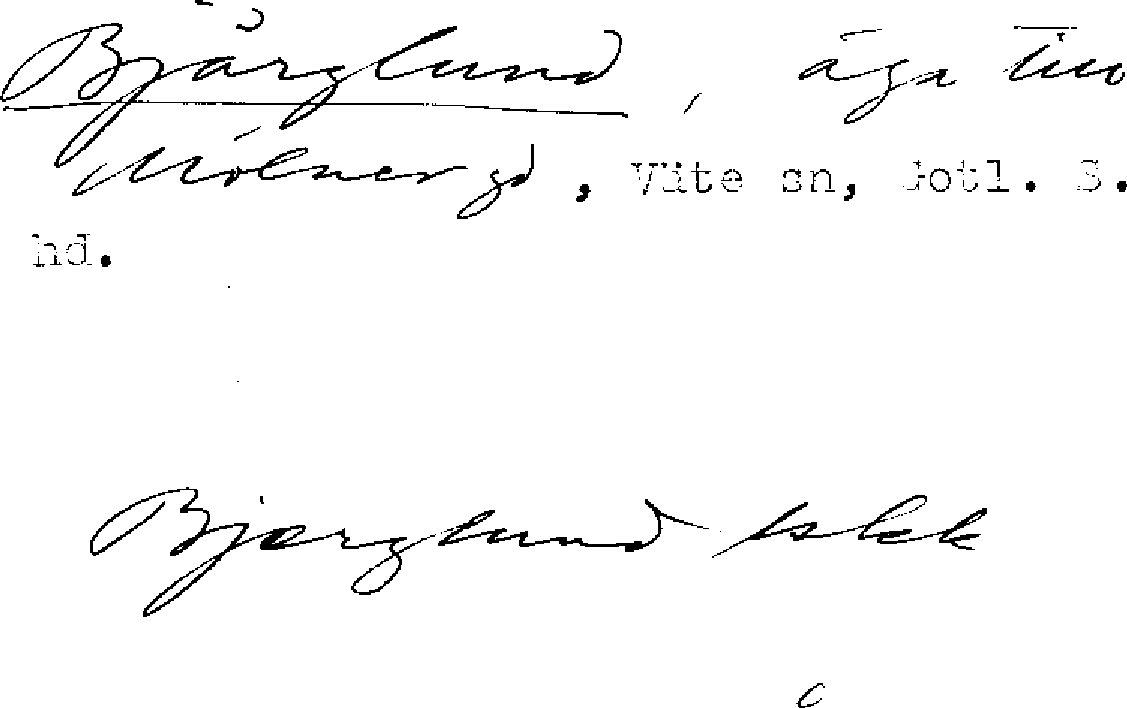 Bjärglund, äga till
Mölner gd, Väte sn, Gotl. S.
hd.
Bjærglund